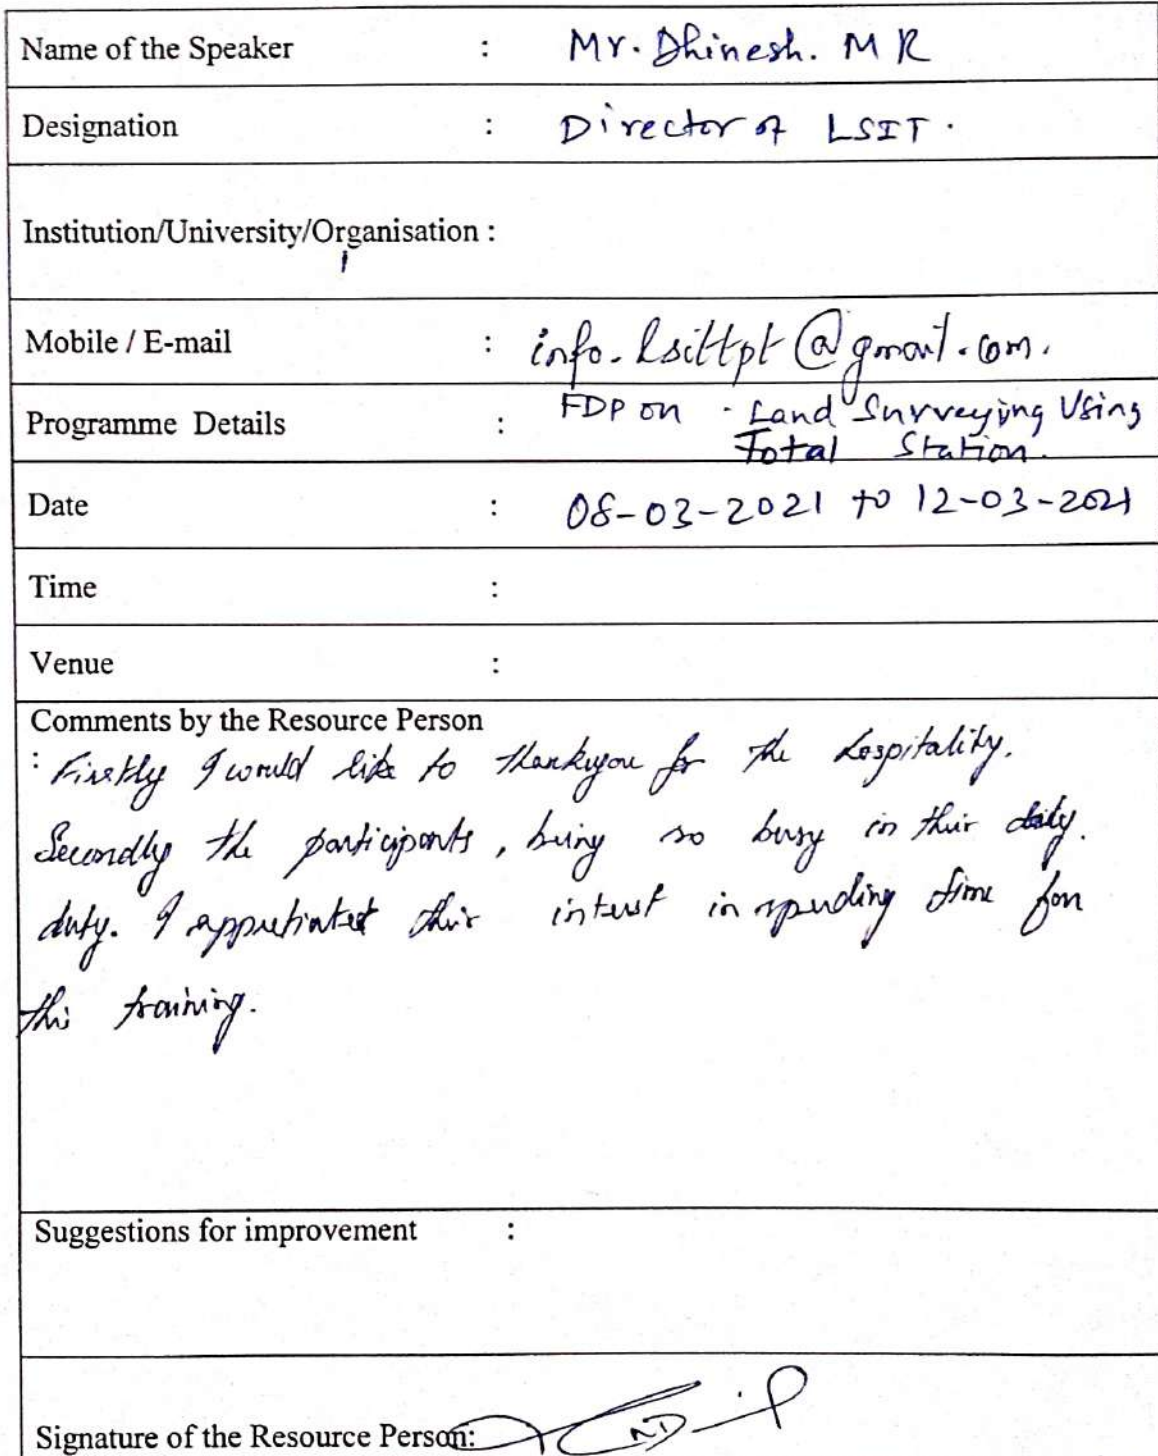 Name of the Speaker : Mr. Dhinesh. M R
Designation : Director of LSIT.
Institution/University/Organisation :
Mobile / E-mail : info.lsittpt@gmail.com.
Programme Details : FDP on Land Surveying Using
Total Station.
Date : 08-03-2021 to 12-03-2021
Time :
Venue :
Comments by the Resource Person
: Firstly I would like to thankyou for the hospitality.
Secondly the participants, being so busy in their daily.
duty. I appretiated their interest in spending time for
this training.
Suggestions for improvement :
Signature of the Resource Person: